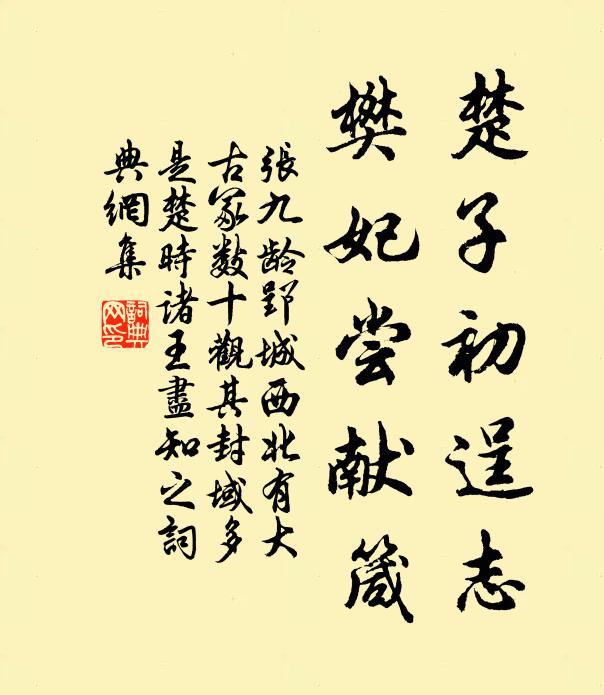 楚子初逞志
樊妃尝献箴
張九龄郢城西北有大
古冢数十觀其封域多
是楚時诸王盡知之詞
典網集
詞典网印